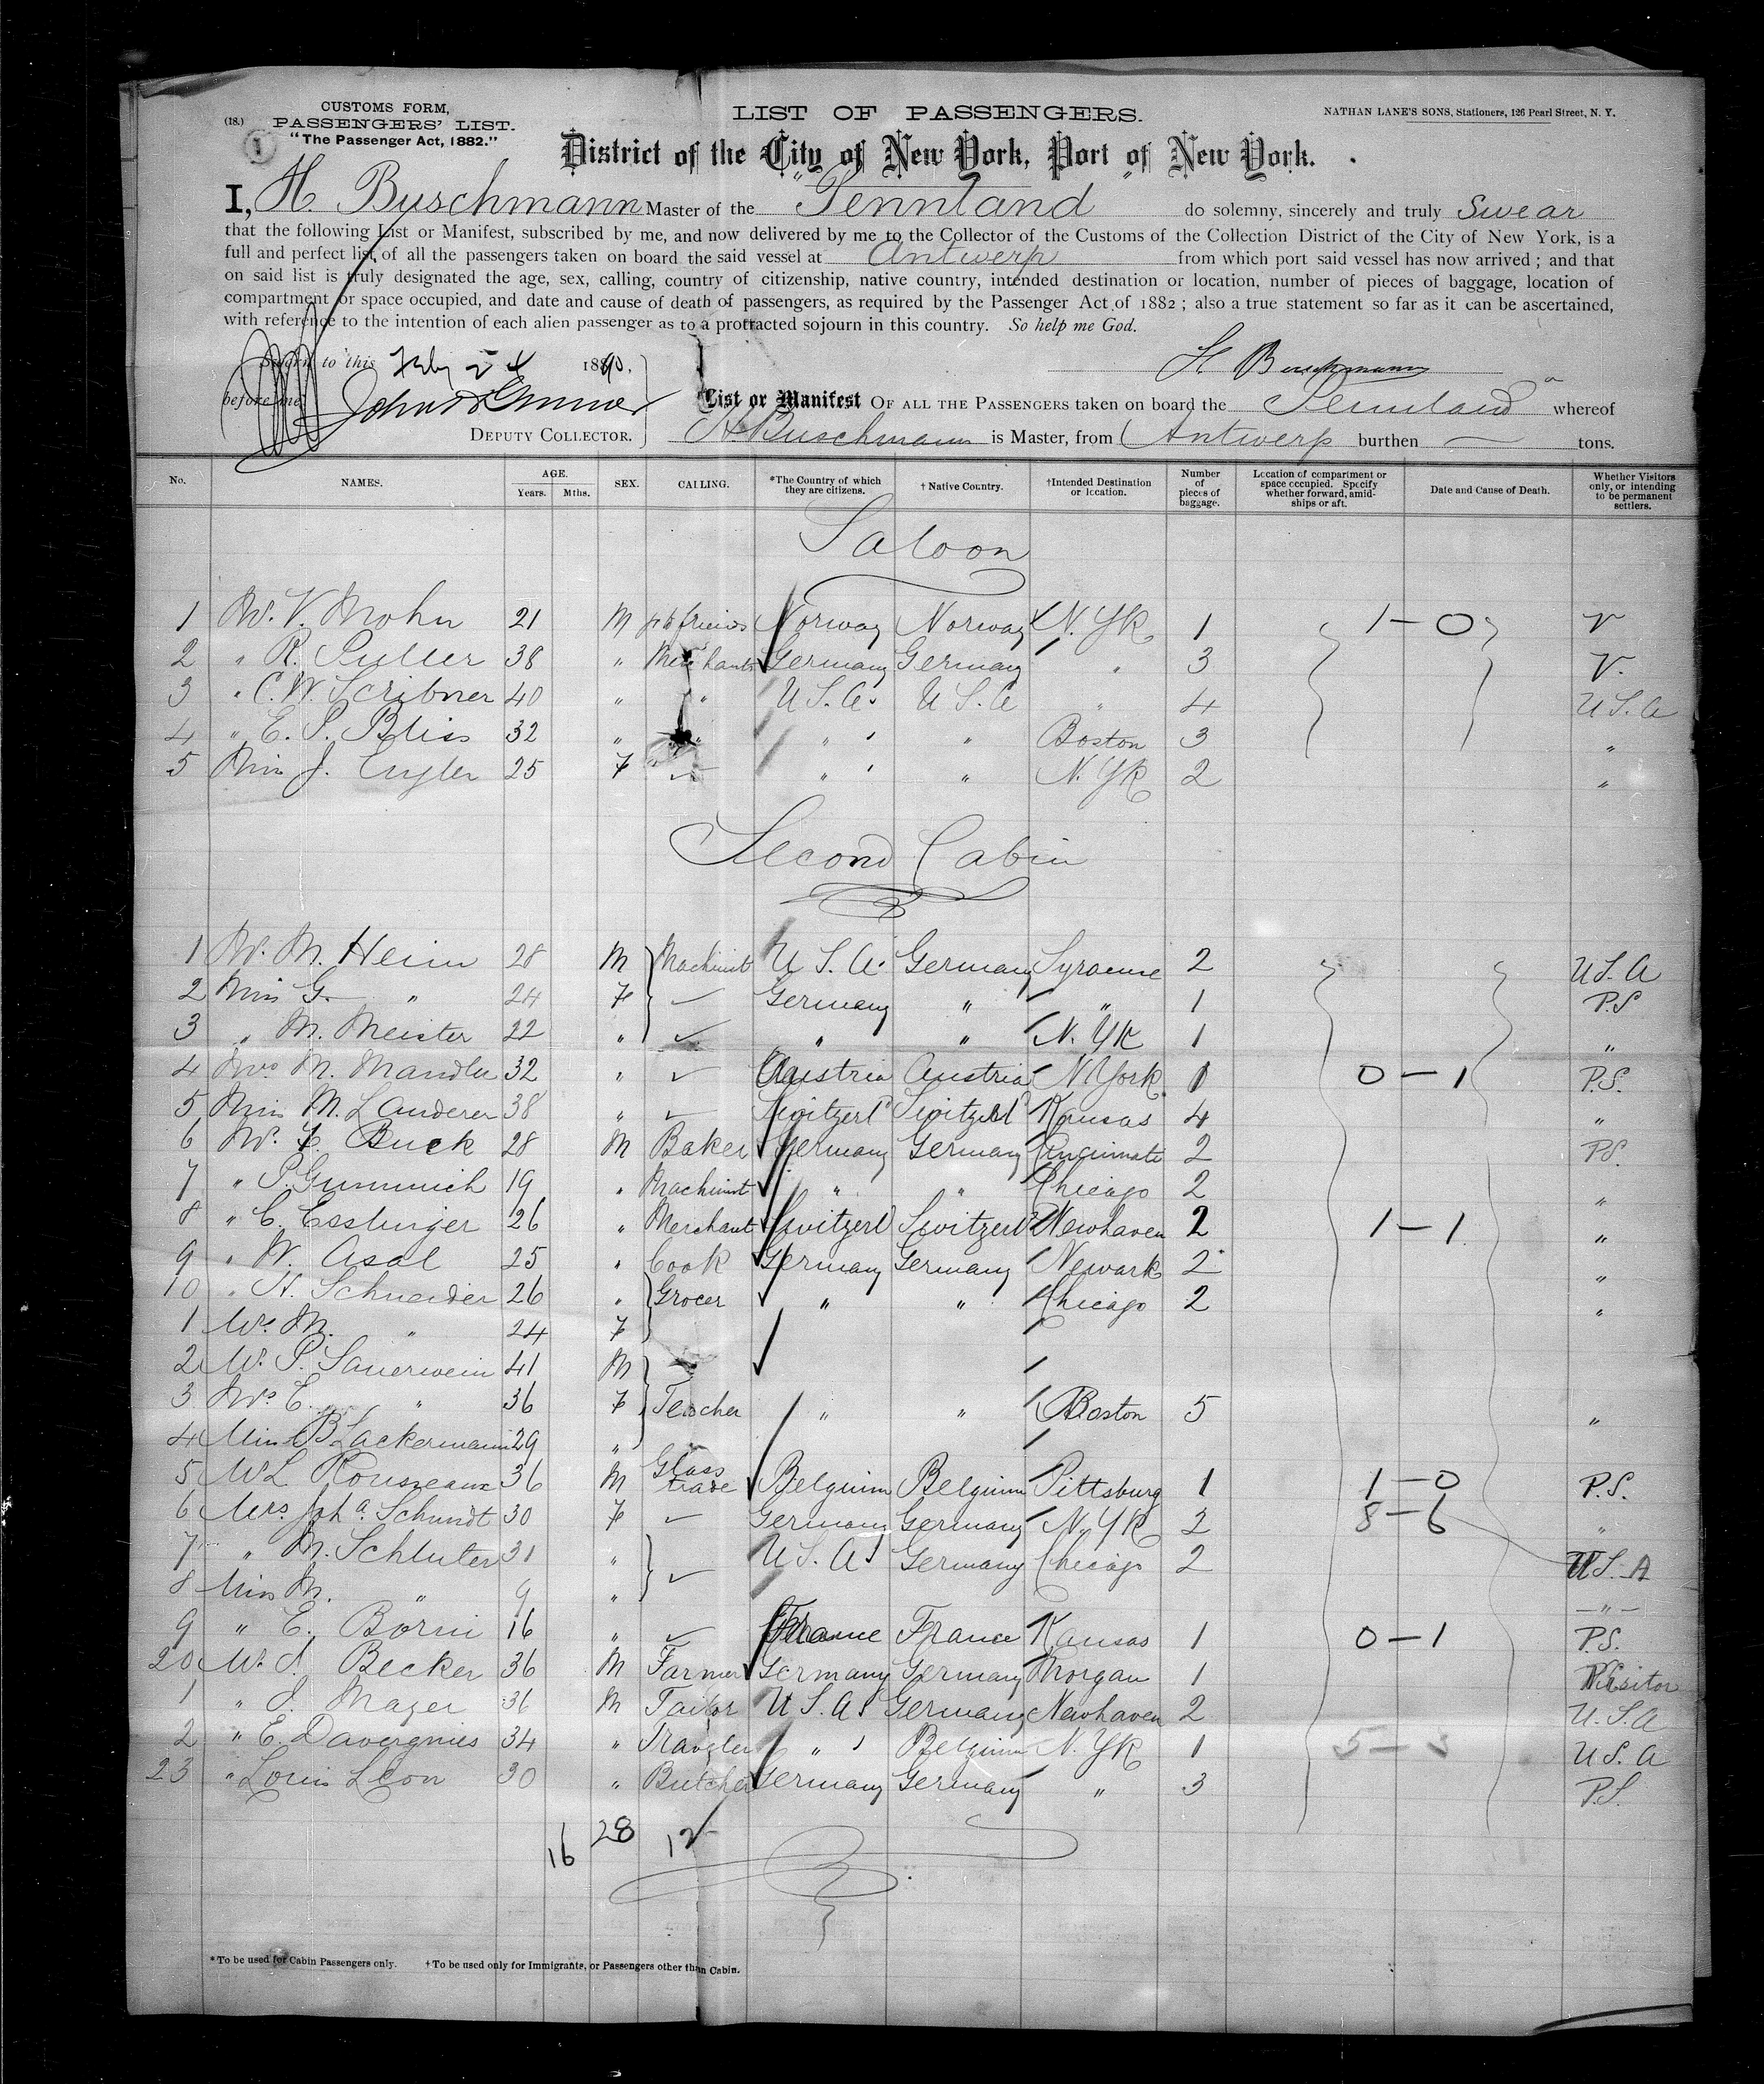 (18.)
CUSTOMS FORM,
PASSENGERS' LIST.
"The Passenger Act, 1882."
1
LIST OF PASSENGERS.
NATHAN LANE'S SONS, Stationers, 126 Pearl Street, N. Y.
District of the City of New York, Port of New York.
I, H. Buschmann Master of the "Pennland" do solemny, sincerely and truly swear
that the following List or Manifest, subscribed by me, and now delivered by me to the Collector of the Customs of the Collection District of the City of New York, is a
full and perfect list of all the passengers taken on board the said vessel at Antwerp from which port said vessel has now arrived ; and that
on said list is truly designated the age, sex, calling, country of citizenship, native country, intended destination or location, number of pieces of baggage, location of
compartment or space occupied, and date and cause of death of passengers, as required by the Passenger Act of 1882 ; also a true statement so far as it can be ascertained,
with reference to the intention of each alien passenger as to a protracted sojourn in this country. So help me God.
Sworn to this Feby 24 1890,
H Buschmann
before me
DEPUTY COLLECTOR.
List or Manifest OF ALL THE PASSENGERS taken on board the Pennland whereof
H Buschmann is Master, from Antwerp burthen — tons.
No. NAMES. AGE. Years. Mths. SEX. CALLING. *The Country of which they are citizens. †Native Country. †Intended Destination or location. Number of pieces of baggage. Location of compartment or space occupied. Specify whether forward, amidships or aft. Date and Cause of Death. Whether Visitors only, or intending to be permanent settlers.
Saloon
1 Mr. V. Mohn 21 M Norway Norway N. Yk 1 1—0 V
2 " R. Puller 38 " Merchant Germany Germany " 3 V.
3 " C. W. Scribner 40 " " U S. A. U S. A " 4 U S. A
4 " E. P. Bliss 32 " " " " Boston 3 "
5 Miss J. Engler 25 F " " N. Yk 2 "
Second Cabin
1 Mr. M. Heim 28 M Machinist U S. A. Germany Syracuse 2 U S. A
2 Miss G. " 24 F Germany " " 1 P.S
3 " M. Meister 22 " " " N. Yk 1 "
4 Mrs M. Mandler 32 " Austria Austria N. York 1 0—1 P.S.
5 Miss M. Landerer 38 " Switzerld Switzerld Kansas 4 "
6 Mr. Buck 28 M Baker Germany Germany Cincinnati 2 P.S.
7 " P. Gummich 19 " Machinist " " Chicago 2 "
8 " C. Esslinger 26 " Merchant Switzerld Switzerld Newhaven 2 1—1 "
9 " W. Asal 25 " Cook Germany Germany Newark 2 "
10 " H. Schneider 26 " Grocer " " Chicago 2 "
1 Mrs M. " 24 F
2 Mr. P. Sauerwein 41 M
3 Mrs E. " 36 F Teacher " " Boston 5 "
4 Miss B. Lackermann 29 "
5 Mr L Rouszeaux 36 M Glass trade Belgium Belgium Pittsburg 1 1—0 P.S.
6 Mrs. Joha. Schmidt 30 F Germany Germany N. Yk 2 8—6 "
7 " M. Schluter 31 " U S. A. Germany Chicago 2 U S. A
8 Miss M. " 9 " — " —
9 " E. Börni 16 " France France Kansas 1 0—1 P.S.
20 Mr. J. Becker 36 M Farmer Germany Germany Morgan 1 Visitor
1 " J. Mazer 36 M Tailor U S. A. Germany Newhaven 2 U. S. A
2 " E. Davergnies 34 " Traveler " Belgium N. Yk 1 U S. A
23 " Louis Leon 30 " Butcher Germany Germany " 3 P.S.
16 28 12
*To be used for Cabin Passengers only. †To be used only for Immigrants, or Passengers other than Cabin.